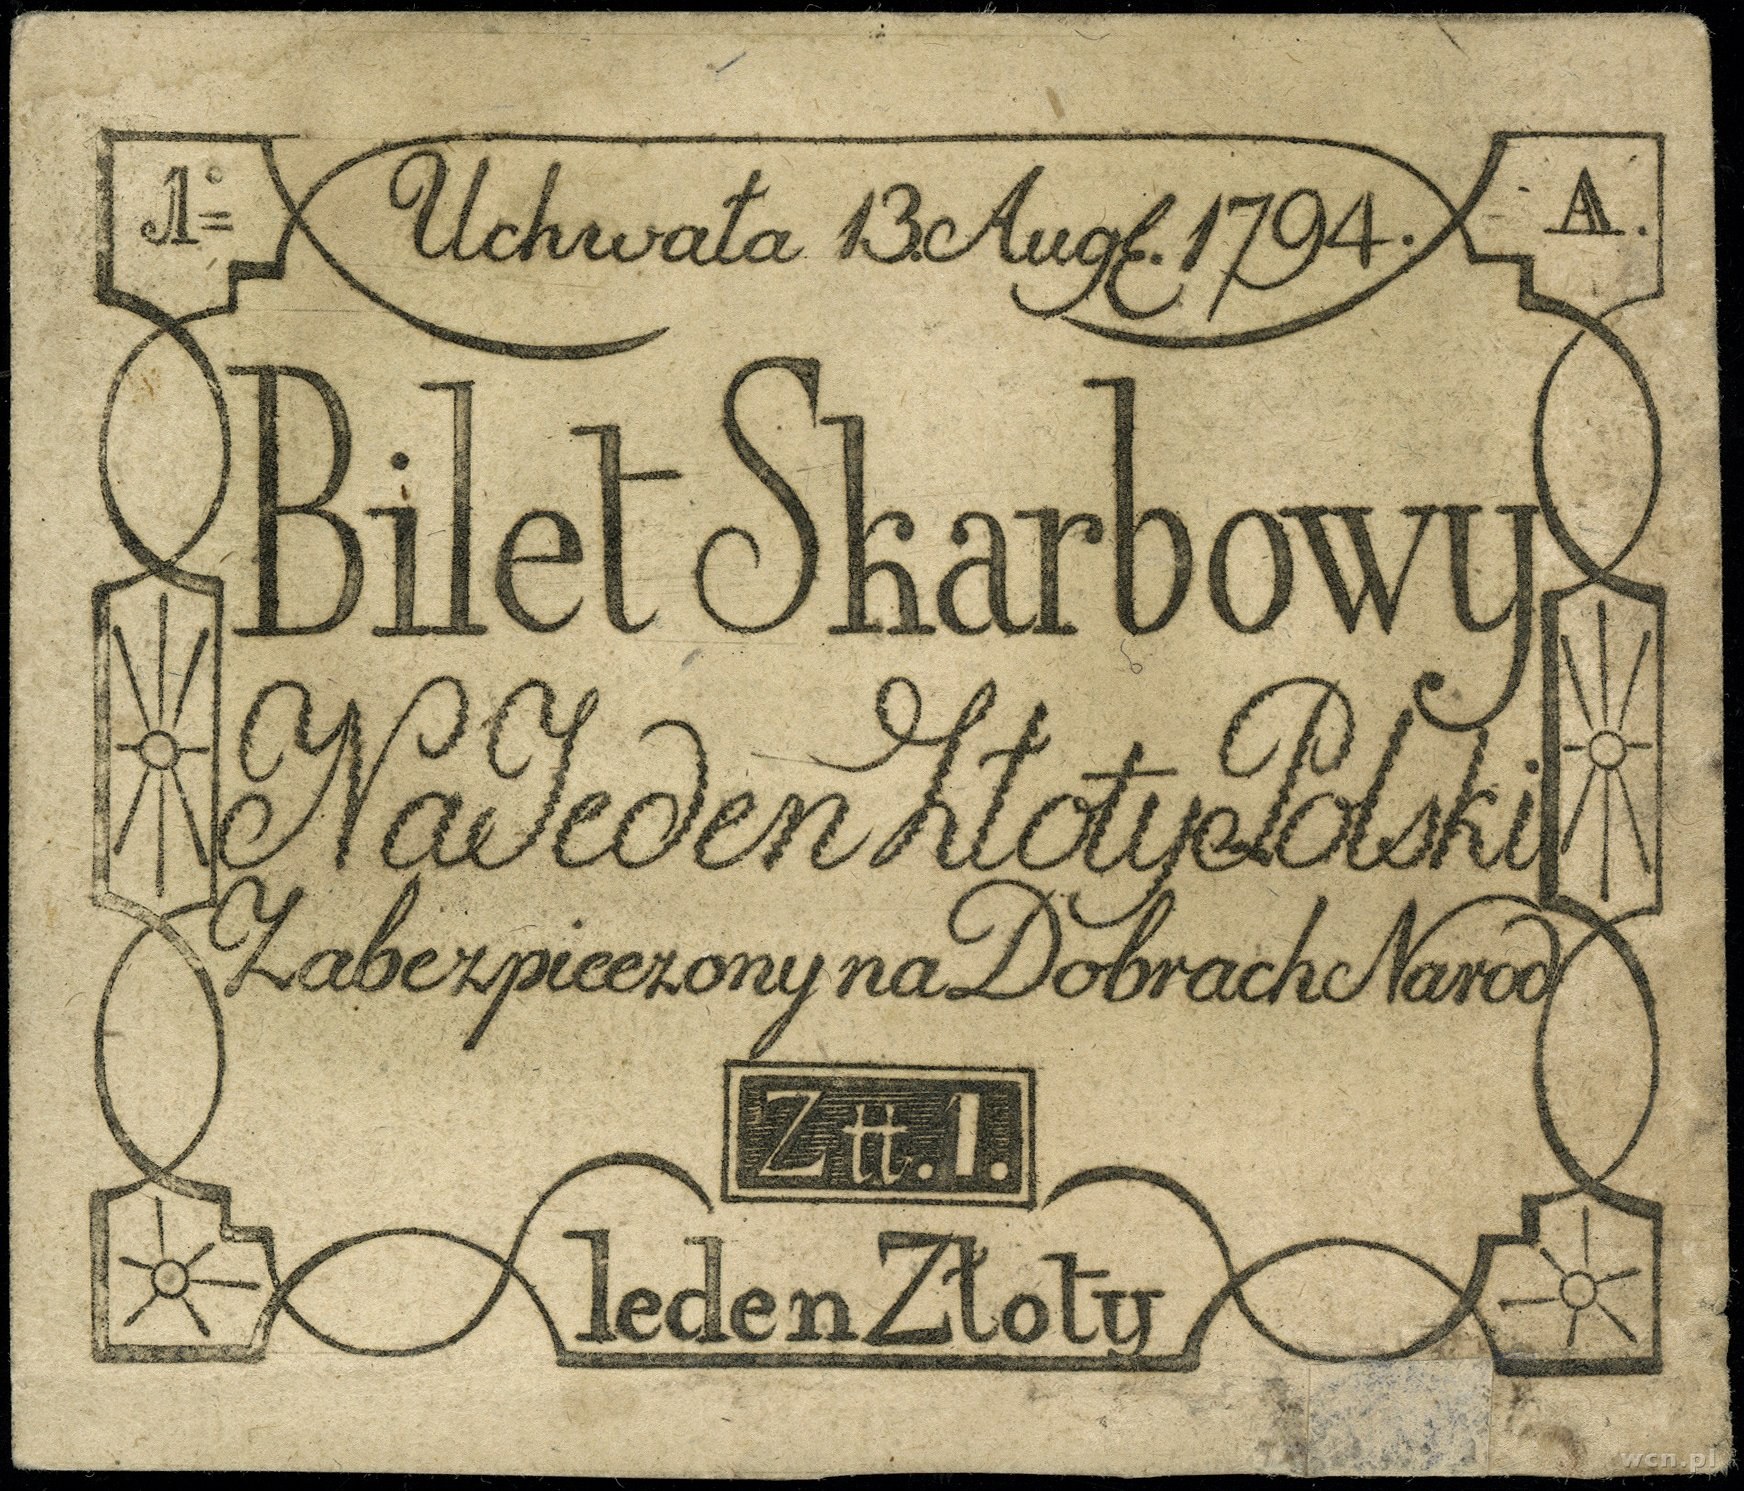 №
Uchwała 13. Augt. 1794.
A.
Bilet Skarbowy
Na Jeden Złoty Polski
Zabezpieczony na Dobrach Narod
Złł. 1.
Ieden Złoty
wcn.pl